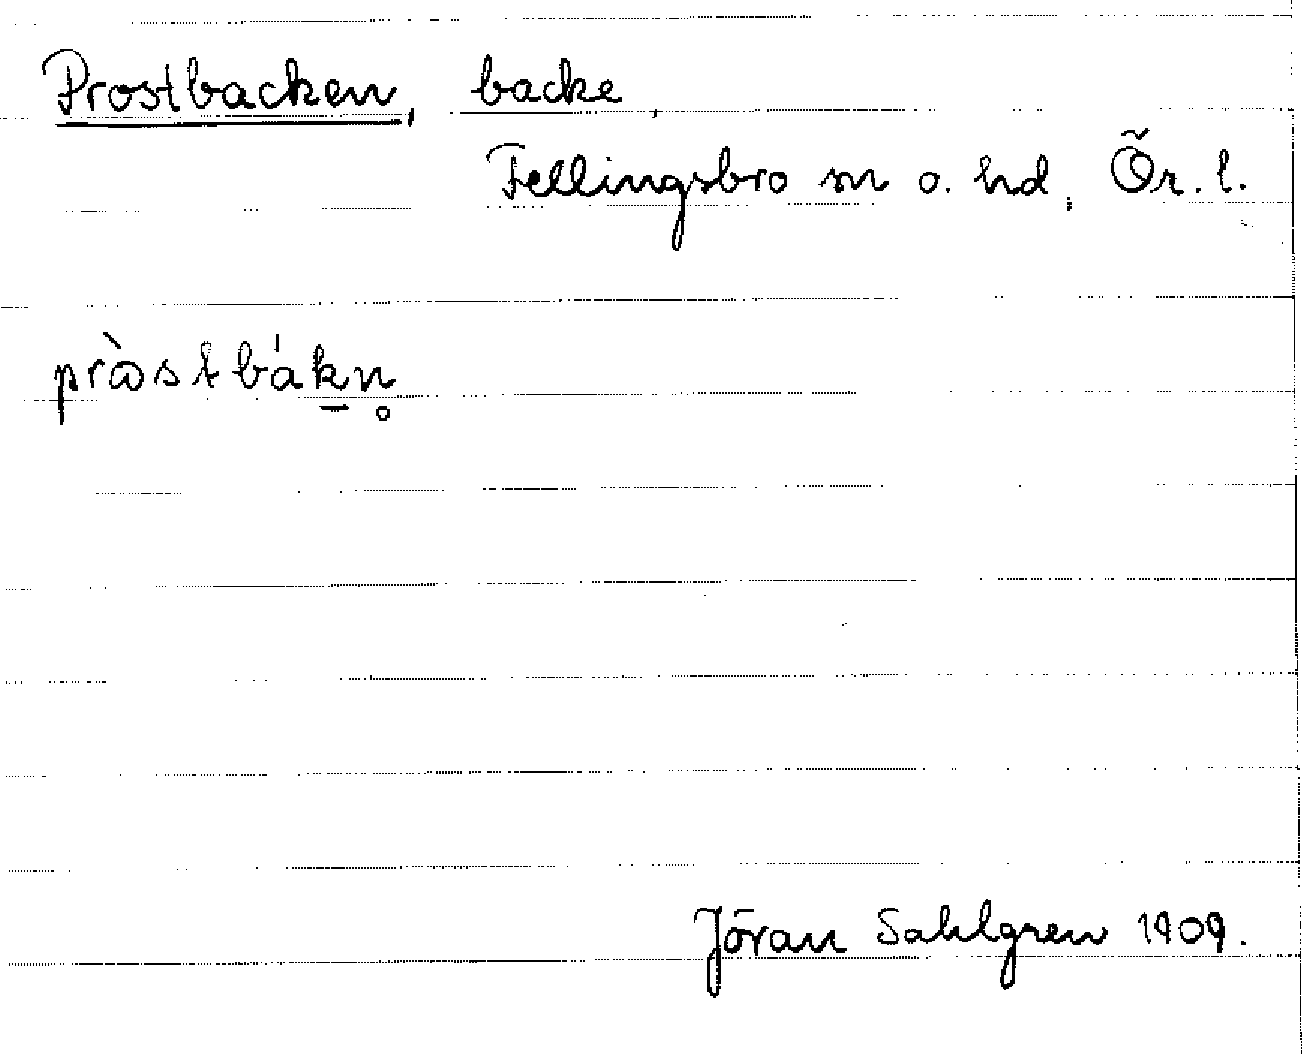 Prostbacken, backe,
Fellingsbro sn o. hd, Ör. l.
prὼstbákn̥
Jöran Sahlgren 1909.